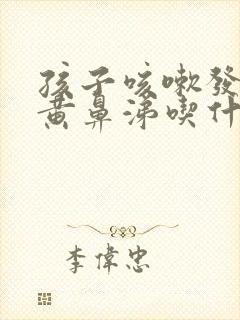 孩子咳嗽發
黃鼻涕喫什
李偉忠